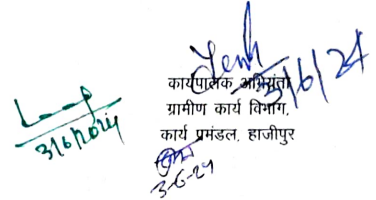 3/6/24
कार्यपालक अभियंता
ग्रामीण कार्य विभाग,
कार्य प्रमंडल, हाजीपुर
3/6/2024
3-6-24